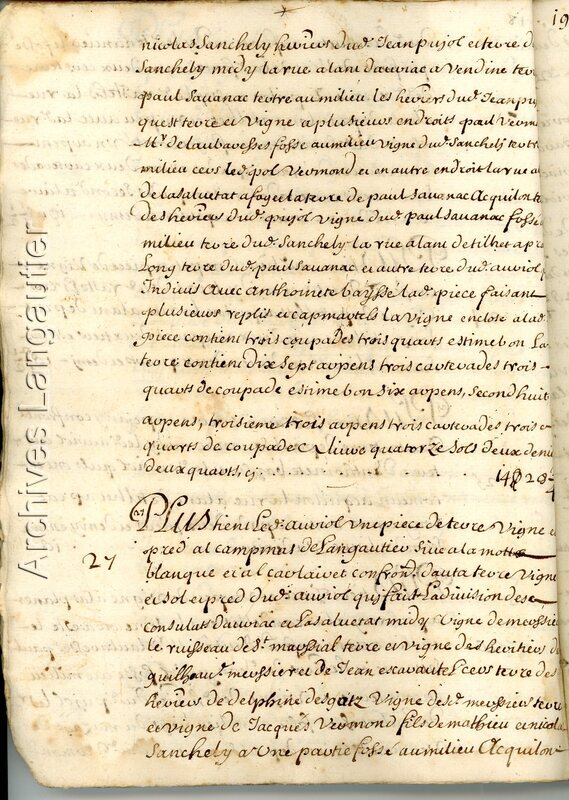 19
nicolas Sanchely heritiers dud. Jean pujol et terre d
Sanchely midy la rue alant dauriac a Vendine terr
paul Sauanac tertre au milieu les heritiers dud. Jean puj
quest terre et Vigne a plusieurs endroits paul Vermo
Mr. de laubaresses fosse au milieu Vigne dud. Sanchely tertr
milieu cers led. pol Vermond et en autre endroit la rue a
de lasaluetat a foget la terre de paul Sauanac Acquilon te
des heritiers dud. pujol Vigne dud. paul sauanac fosse
milieu terre dud. Sanchely la rue alant de tilhet a pre
Long terre dud. paul Sauanac et autre terre dud. auriol p
Indivis Avec Anthoinete baysse lad. piece faisant
plusieurs replis et capmartels la Vigne enclose a lad.
piece contient trois coupades trois quarts estime bon La
terre contient dix sept arpens trois carterades trois
quarts de coupade estime bon six arpens, second huit
arpens, troisieme trois arpens trois carterades trois
quarts de coupade Liure quatorze sols deux denie
deux quarts, cy
27
Plus tient Led. auriol Une piece de terre Vigne e
pred al campmas de Langautier Siue a la motte
blanque et al carlairet confron. dauta terre Vigne
et sol et pred dud. auriol quj faist La diuision des
consulats dauriac et Lasaluetat midy Vigne de meussie
le ruisseau de St. marsial terre et Vigne des heritiers de
guilhaum. meussier et de Jean escarauate Lcers terre des
heritiers de delphine desgatz Vigne des. meussiers terre
et Vigne de Jacques Vermond fils de mathieu et nicola
Sanchely a Une partie fosse au milieu Acquilon
Archives Langautier